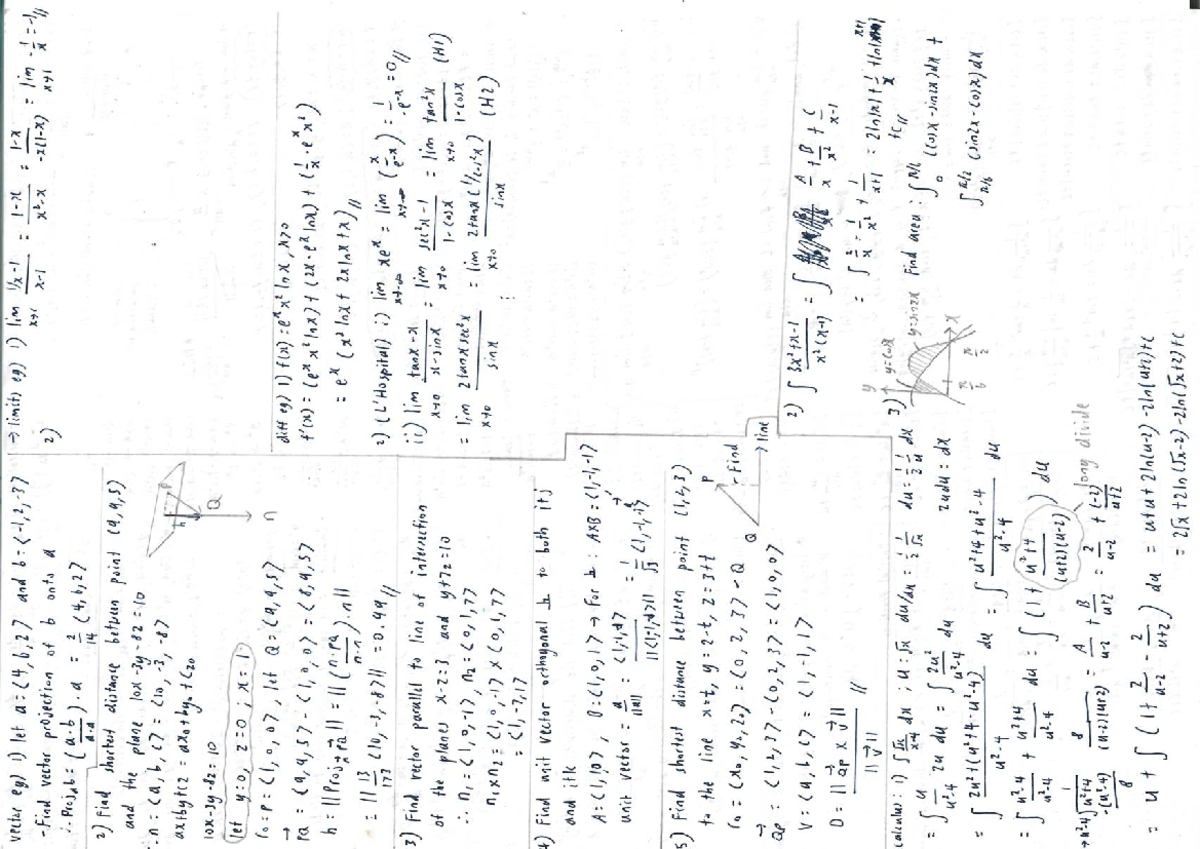 vector eg) 1) let a = ⟨4, 6, 2⟩ and b = ⟨-1, 2, -3⟩
- Find vector projection of b onto a
∴ Proj_a b = (a·b / a·a) · a = 2/14 ⟨4, 6, 2⟩
2) Find shortest distance between point (9, 9, 5)
and the plane 10x-3y-8z=10
∴ n = ⟨a, b, c⟩ = ⟨10, -3, -8⟩
ax+by+cz = ax0+by0+cz0
10x-3y-8z=10
let y=0, z=0 ; x=1
r0 = P = ⟨1, 0, 0⟩, let Q = ⟨9, 9, 5⟩
PQ = ⟨9, 9, 5⟩ - ⟨1, 0, 0⟩ = ⟨8, 9, 5⟩
h = ||Proj_n PQ|| = ||(n·PQ / n·n) n||
= ||13/173 ⟨10, -3, -8⟩|| = 0.99//
h
Q
n
3) Find vector parallel to line of intersection
of the planes x-z=3 and y+7z=10
∴ n1 = ⟨1, 0, -1⟩, n2 = ⟨0, 1, 7⟩
n1 x n2 = ⟨1, 0, -1⟩ x ⟨0, 1, 7⟩
= ⟨1, -7, 1⟩
4) Find unit vector orthogonal to both i+j
and i+k
A = ⟨1, 1, 0⟩, B = ⟨1, 0, 1⟩ → For ⊥ : A×B = ⟨1, -1, -1⟩
unit vector = a/||a||
= 1/√3 ⟨1, -1, -1⟩
5) Find shortest distance between point (1, 2, 3)
to the line x=t, y=2-t, z=3+t
r0 = (x0, y0, z0) = ⟨0, 2, 3⟩ → Q
QP = ⟨1, 2, 3⟩ - ⟨0, 2, 3⟩ = ⟨1, 0, 0⟩
V = ⟨a, b, c⟩ = ⟨1, -1, 1⟩
D = ||QP x V|| / ||V|| //
P
Find
Q
line
calculus : 1) ∫ √x/(x-4) dx ; u = √x du/dx = 1/2 1/√x du = 1/2 1/u dx
= ∫ u/(u²-4) 2u du = ∫ 2u²/(u²-4) du 2udu = dx
= ∫ (2u²+(u²+4-u²-4))/(u²-4) du = ∫ (u²+4+u²-4)/(u²-4) du
= ∫ (u²-4)/(u²-4) + (u²+4)/(u²-4) du = ∫ (1+ (u²+4)/((u+2)(u-2))) du
long divide
8/((u-2)(u+2)) = A/(u-2) + B/(u+2) = 2/(u-2) + (-2)/(u+2)
= u + ∫ (1+ 2/(u-2) - 2/(u+2)) du = u+u+2ln(u-2)-2ln(u+2)+c
= 2√x+2ln(√x-2)-2ln(√x+2)+c
→ limits eg) 1) lim x→1 (1/x-1)/(x-1) = (1-x)/(x²-x) = (1-x)/(-x(1-x)) = lim x→1 -1/x = -1//
2)
diff eg) 1) f(x) = eˣx² ln x, x>0
f'(x) = (eˣx² lnx) + (2x·eˣ lnx) + (1/x·eˣx²)
= eˣ (x² lnx + 2x lnx + x)//
2) (L'Hospital) i) lim x→-∞ xeˣ = lim x→-∞ (x/e-x) = 1/-e-x = 0//
ii) lim x→0 (tanx-x)/(x-sinx) = lim x→0 (sec²x-1)/(1-cosx) = lim x→0 tan²x/(1-cosx) (H1)
= lim x→0 2tanxsec²x/sinx = lim x→0 2tanx(1/cos²x)/sinx (H2)
2) ∫ (3x²+x-1)/(x²(x-1)) = ∫ A/x + B/x² + C/(x-1)
= 2ln|x| + 1/x + ln|x+1|
+C//
3) y=cosx y=sin2x Find area : ∫ 0 π/6 (cosx-sin2x)dx +
∫ π/6 π/2 (sin2x-cosx)dx
y
x
π/6
π/2